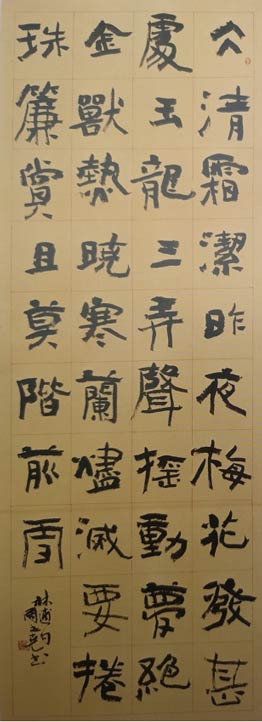 仌清霜潔昨夜梅花發甚
處玉龍三弄聲搖動夢絕
金獸熱曉寒蘭燼滅要捲
珠簾賞且莫階前雪
林逋句
書